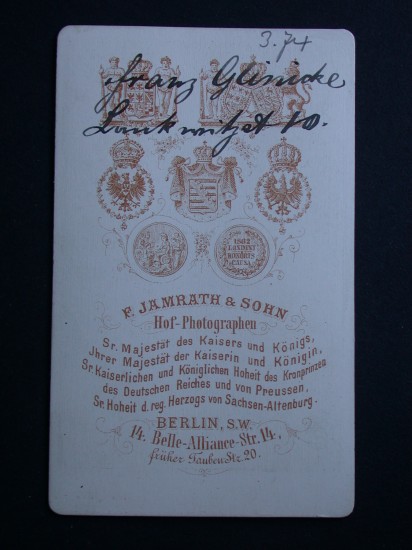 3.74
Franz Glinicke
Lankwitzst 10.
1862
LONDINI
HONORIS
CAUSA
F. JAMRATH & SOHN
Hof-Photographen
Sr. Majestät des Kaisers und Königs,
Jhrer Majestät der Kaiserin und Königin,
Sr. Kaiserlichen und Königlichen Hoheit des Kronprinzen
des Deutschen Reiches und von Preussen,
Sr. Hoheit d. reg. Herzogs von Sachsen-Altenburg.
BERLIN, S.W.
14. Belle-Alliance-Str. 14,
früher Tauben Str. 20.